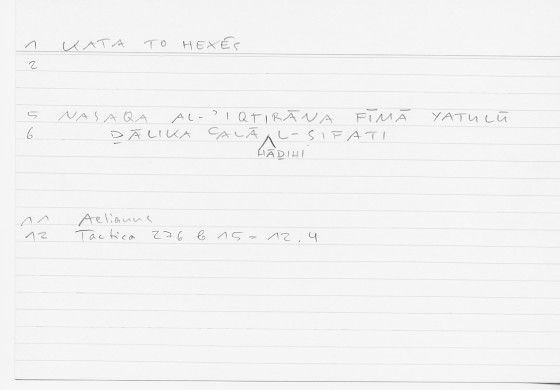 1 KATA TO HEXĒS
2
5 NASAQA AL-'IQTIRĀNA FĪMĀ YATULŪ
6 ḎĀLIKA ʿALĀ L-ṢIFATI
HĀḎIHI
11 Aelianus
12 Tactica 276 b 15 = 12.4